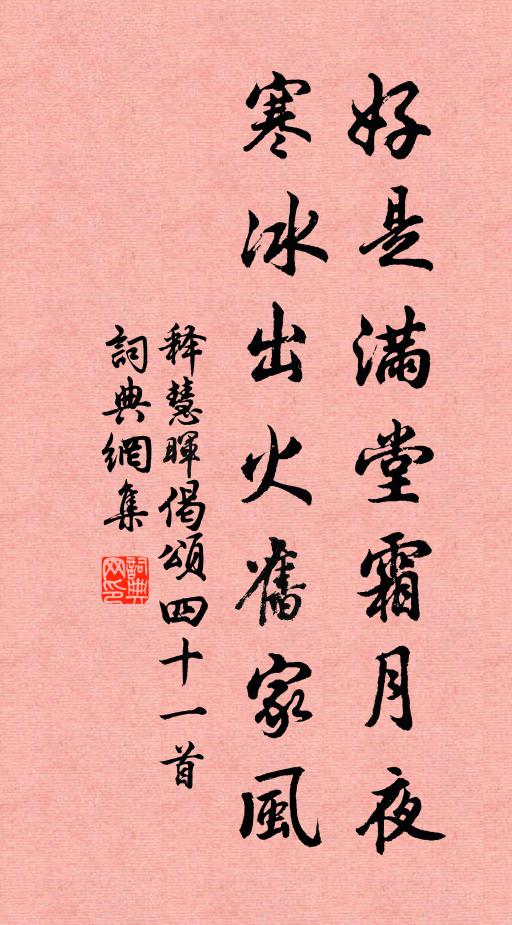 好是滿堂霜月夜
寒冰出火舊家風
释慧暉偈頌四十一首
詞典網集
詞典网印